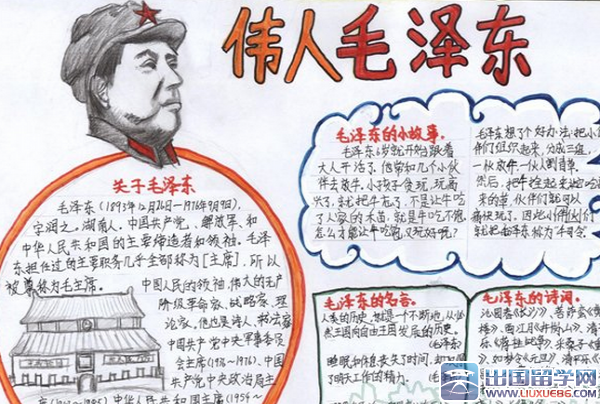 伟人毛泽东
关于毛泽东
毛泽东(1893年12月26日-1976年9月9日),
字润之。湖南人。中国共产党、解放军、和
中华人民共和国的主要缔造者和领袖。毛泽
东担任过的主要职务几乎全部称为[主席],所以
被尊称为毛主席。
中国人民的领袖,伟大的无产
阶级革命家、战略家、理
论家,他也是诗人、书法家
中国共产党中央军事委员
会主席(1936-1976)、中国
共产党中央政治局主
中华人民共和国主席(1954-
毛泽东的小故事。
毛泽东6岁就开始跟着
大人干活了。他常和几个小伙
伴去放牛。小孩子贪玩,玩高
兴了,就把牛忘了,不是让牛吃
了人家的禾苗,就是牛吃不饱,
怎么才能让牛吃饱,又玩好呢?
毛泽东想了个好办法:把小伙
伴们组织起来,分成三组,
一伙放牛,一伙人割青草,
然后,把牛拴起来
来的草,伙伴们就可以
痛快玩了。因此小伙伴们
就把毛泽东称为“牛司令”
毛泽东的名言。
人类的历史,就是一个不断地,从必
然王国向自由王国发展的历史。
(毛泽东)
睡眠和休息丧失了时间,却
了明天工作的精力。
毛泽东的诗词。
沁园春《长沙》、菩萨蛮《黄
楼》、西江月《井冈山》、清平
乐
、如梦令《元旦》、
出国留学网
www.liuxue86.com